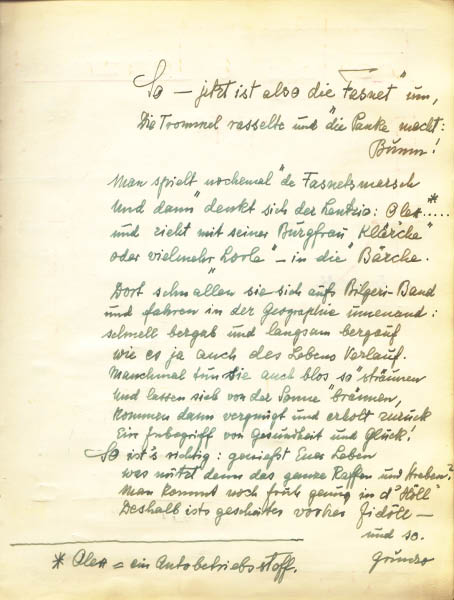 So – jetzt ist also die "Fasnet" um,
Die Trommel rasselte und die Pauke macht:
Bumm!
Man spielt nochemal "de Fasnetsmarsch
Und dann" denkt sich der Lentzio: Olex*....
und zieht mit seiner Burgfrau Klärche"
oder vielmehr "Lorle" – in die "Bärche.
Dort schnallen sie sich aufs Bilgeri-Band
und fahren in der Geographie umenand:
schnell bergab und langsam bergauf
wie es ja auch des Lebens Verlauf.
Manchmal tun sie auch blos so "sträunen
Und lassen sich von der Sonne "bräunen,
kommen dann vergnügt und erholt zurück
Ein Inbegriff von Gesundheit und Glück!
So ist's richtig: genießt Euer Leben
was nützt denn das ganze Raffen und Streben?
Man kommt noch früh genug in d' "Höll"
Deshalb ists gescheiter vorher
und so.
* Olex = ein Autobetriebsstoff.